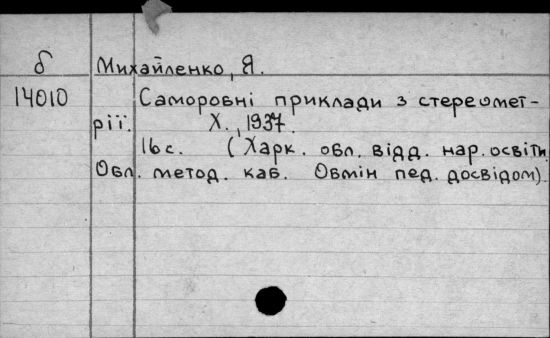 б Михайленко, Я.
14010 Саморовні приклади з стереомет-
рії. Х., 1937.
16 с. (Харк. обл. відд. нар. освіти
Обл. метод. каб. Обмін пед. досвідом).